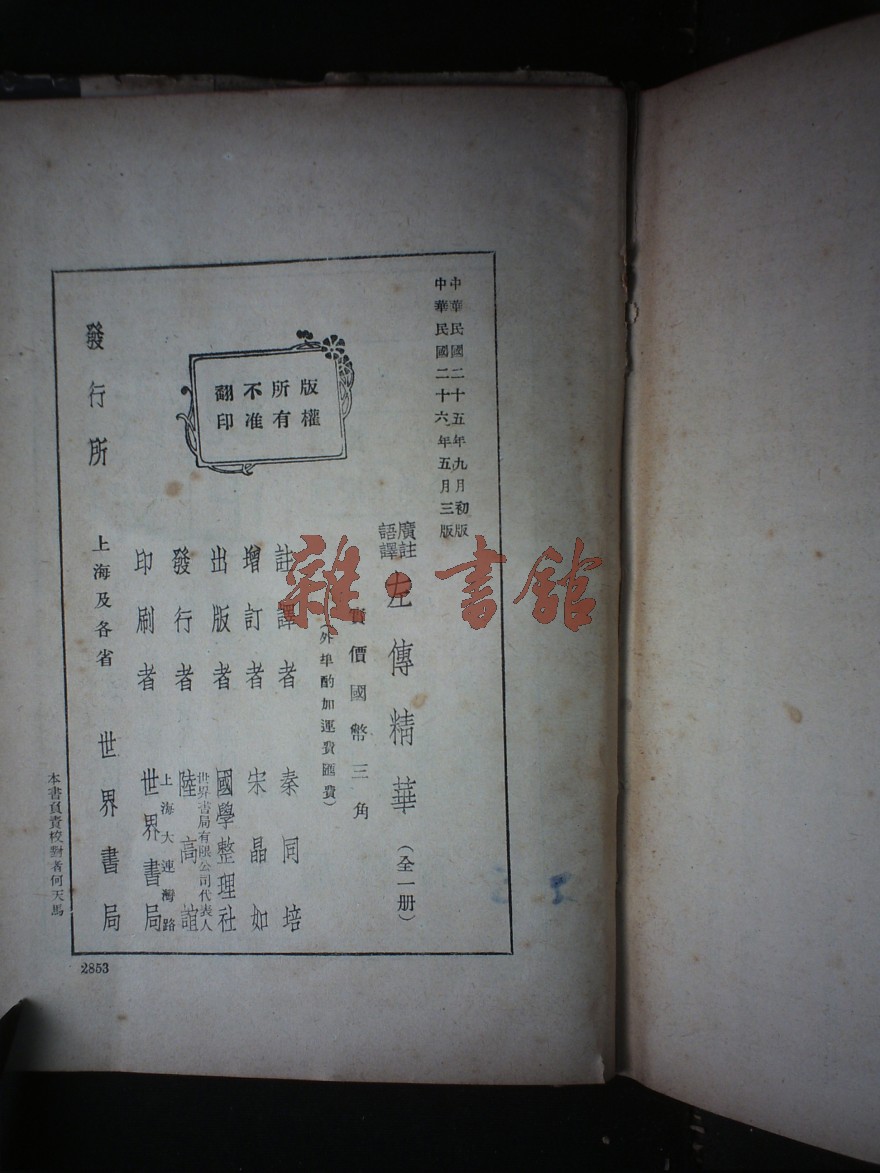 中華民國二十五年九月初版
中華民國二十六年五月三版
廣註
語譯
左傳精華（全一册）
實價國幣三角
（外埠酌加運費匯費）
版權
所有
不准
翻印
註譯者 秦同培
增訂者 宋晶如
出版者 國學整理社
世界書局有限公司代表人
發行者 陸高誼
上海大連灣路
印刷者 世界書局
發行所 上海及各省 世界書局
本書負責校對者何天馬
2853
雜·書館